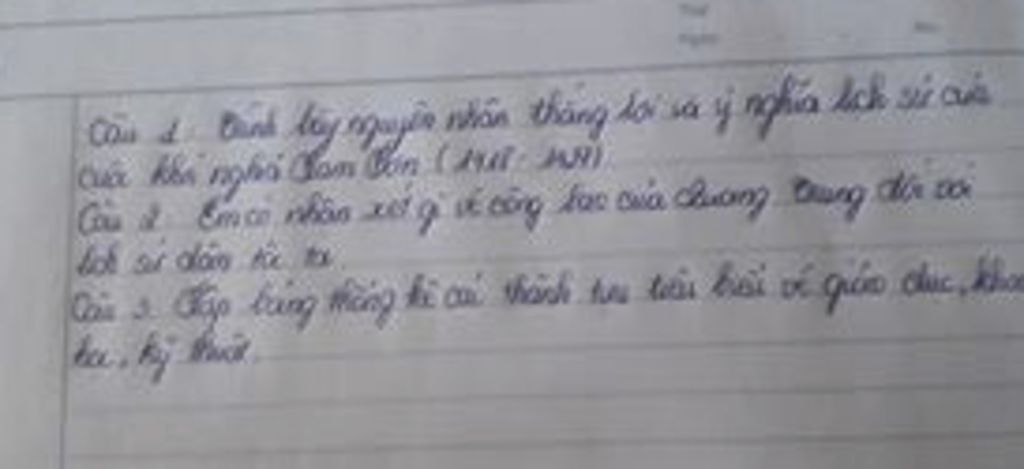 Câu 1. Trình bày nguyên nhân thắng lợi và ý nghĩa lịch sử của
cuộc khởi nghĩa Lam Sơn (1418 - 1427).
Câu 2. Em có nhận xét gì về công lao của Quang Trung đối với
lịch sử dân tộc ta.
Câu 3. Lập bảng thống kê các thành tựu tiêu biểu về giáo dục, khoa
học, kỹ thuật.